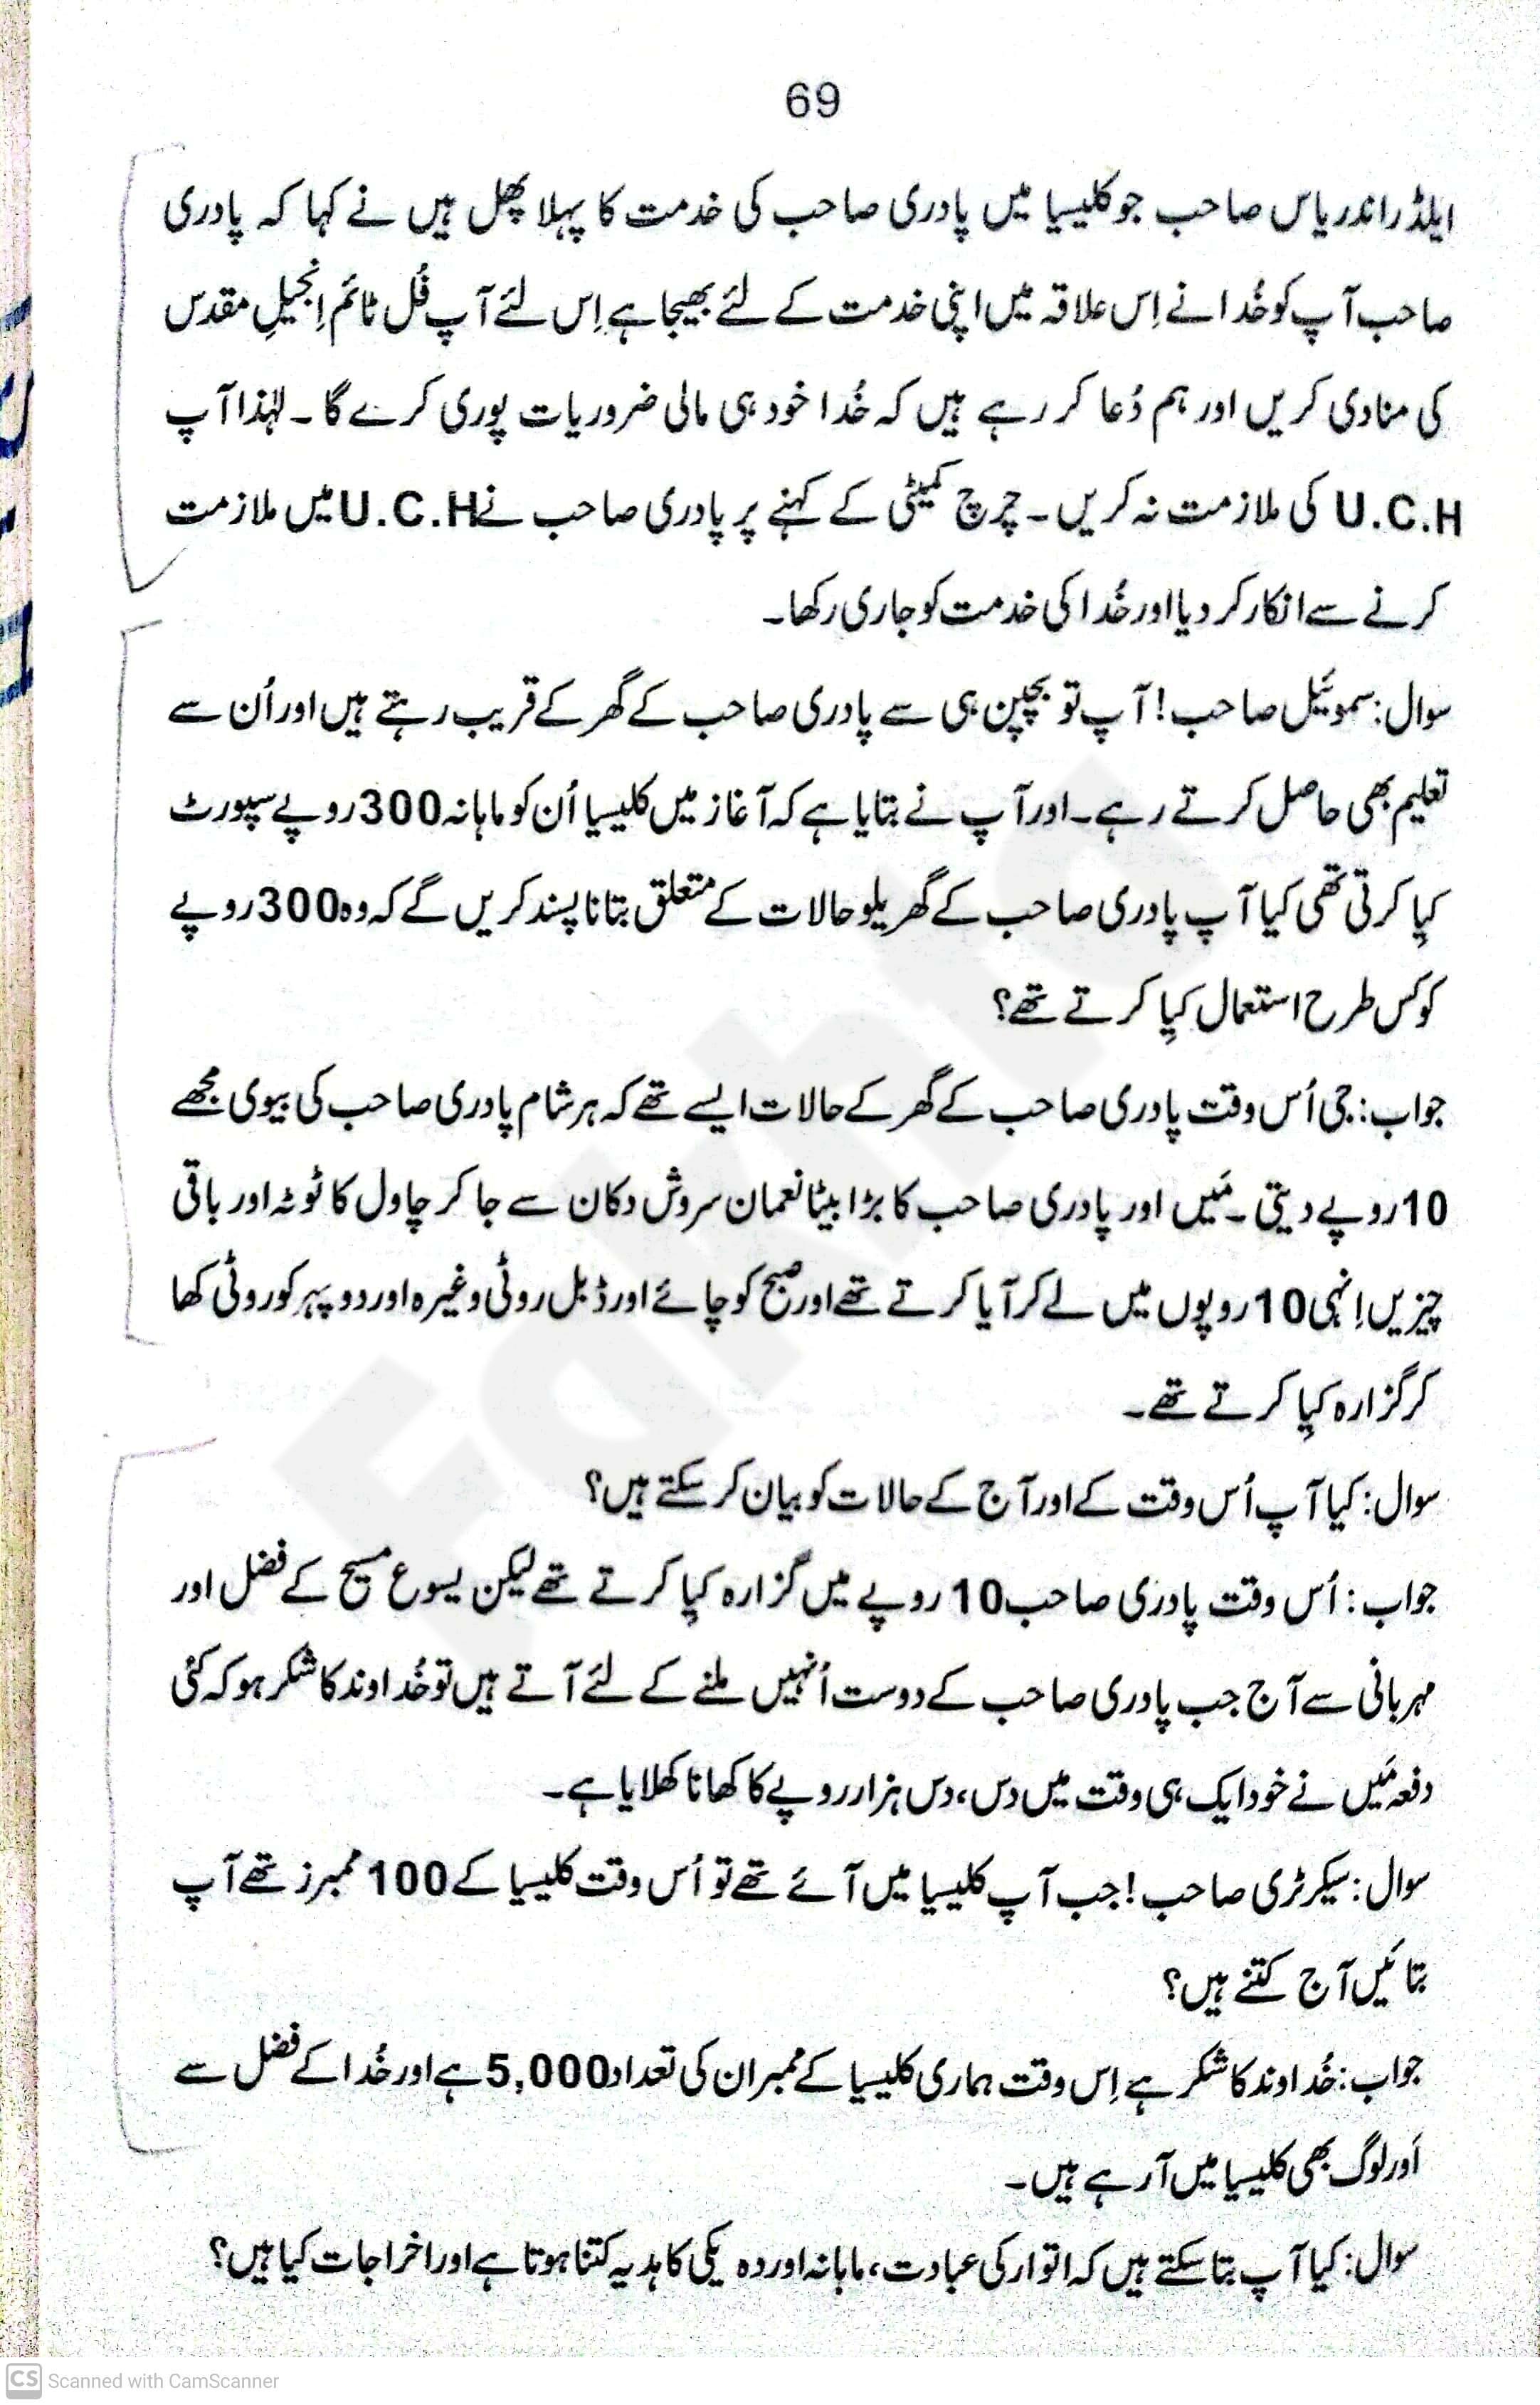 69
ایلڈر اندریاس صاحب جو کلیسیا میں پادری صاحب کی خدمت کا پہلا پھل ہیں نے کہا کہ پادری
صاحب آپ کو خُدا نے اِس علاقہ میں اپنی خدمت کے لئے بھیجا ہے اِس لئے آپ فُل ٹائم اِنجیلِ مقدس
کی منادی کریں اور ہم دُعا کر رہے ہیں کہ خُدا خود ہی مالی ضروریات پوری کرے گا۔ لہٰذا آپ
U.C.H کی ملازمت نہ کریں۔ چرچ کمیٹی کے کہنے پر پادری صاحب نے U.C.H میں ملازمت
کرنے سے انکار کر دیا اور خُدا کی خدمت کو جاری رکھا۔
سوال: سموئیل صاحب! آپ تو بچپن ہی سے پادری صاحب کے گھر کے قریب رہتے ہیں اور اُن سے
تعلیم بھی حاصل کرتے رہے۔ اور آپ نے بتایا ہے کہ آغاز میں کلیسیا اُن کو ماہانہ 300 روپے سپورٹ
کِیا کرتی تھی کیا آپ پادری صاحب کے گھریلو حالات کے متعلق بتانا پسند کریں گے کہ وہ 300 روپے
کو کس طرح استعمال کِیا کرتے تھے؟
جواب: جی اُس وقت پادری صاحب کے گھر کے حالات ایسے تھے کہ ہر شام پادری صاحب کی بیوی مجھے
10 روپے دیتی۔ مَیں اور پادری صاحب کا بڑا بیٹا نعمان سروش دکان سے جا کر چاول کا ٹوٹہ اور باقی
چیزیں اِنہی 10 روپوں میں لے کر آیا کرتے تھے اور صبح کو چائے اور ڈبل روٹی وغیرہ اور دوپہر کو روٹی کھا
کر گزارہ کِیا کرتے تھے۔
سوال: کیا آپ اُس وقت کے اور آج کے حالات کو بیان کر سکتے ہیں؟
جواب: اُس وقت پادری صاحب 10 روپے میں گزارہ کِیا کرتے تھے لیکن یسوع مسیح کے فضل اور
مہربانی سے آج جب پادری صاحب کے دوست اُنہیں ملنے کے لئے آتے ہیں تو خُداوند کا شکر ہو کہ کئی
دفعہ مَیں نے خود ایک ہی وقت میں دس، دس ہزار روپے کا کھانا کھلایا ہے۔
سوال: سیکرٹری صاحب! جب آپ کلیسیا میں آئے تھے تو اُس وقت کلیسیا کے 100 ممبرز تھے آپ
بتائیں آج کتنے ہیں؟
جواب: خُداوند کا شکر ہے اِس وقت ہماری کلیسیا کے ممبران کی تعداد 5,000 ہے اور خُدا کے فضل سے
اَور لوگ بھی کلیسیا میں آ رہے ہیں۔
سوال: کیا آپ بتا سکتے ہیں کہ اتوار کی عبادت، ماہانہ اور دہ یکی کا ہدیہ کتنا ہوتا ہے اور اخراجات کیا ہیں؟
CS Scanned with CamScanner